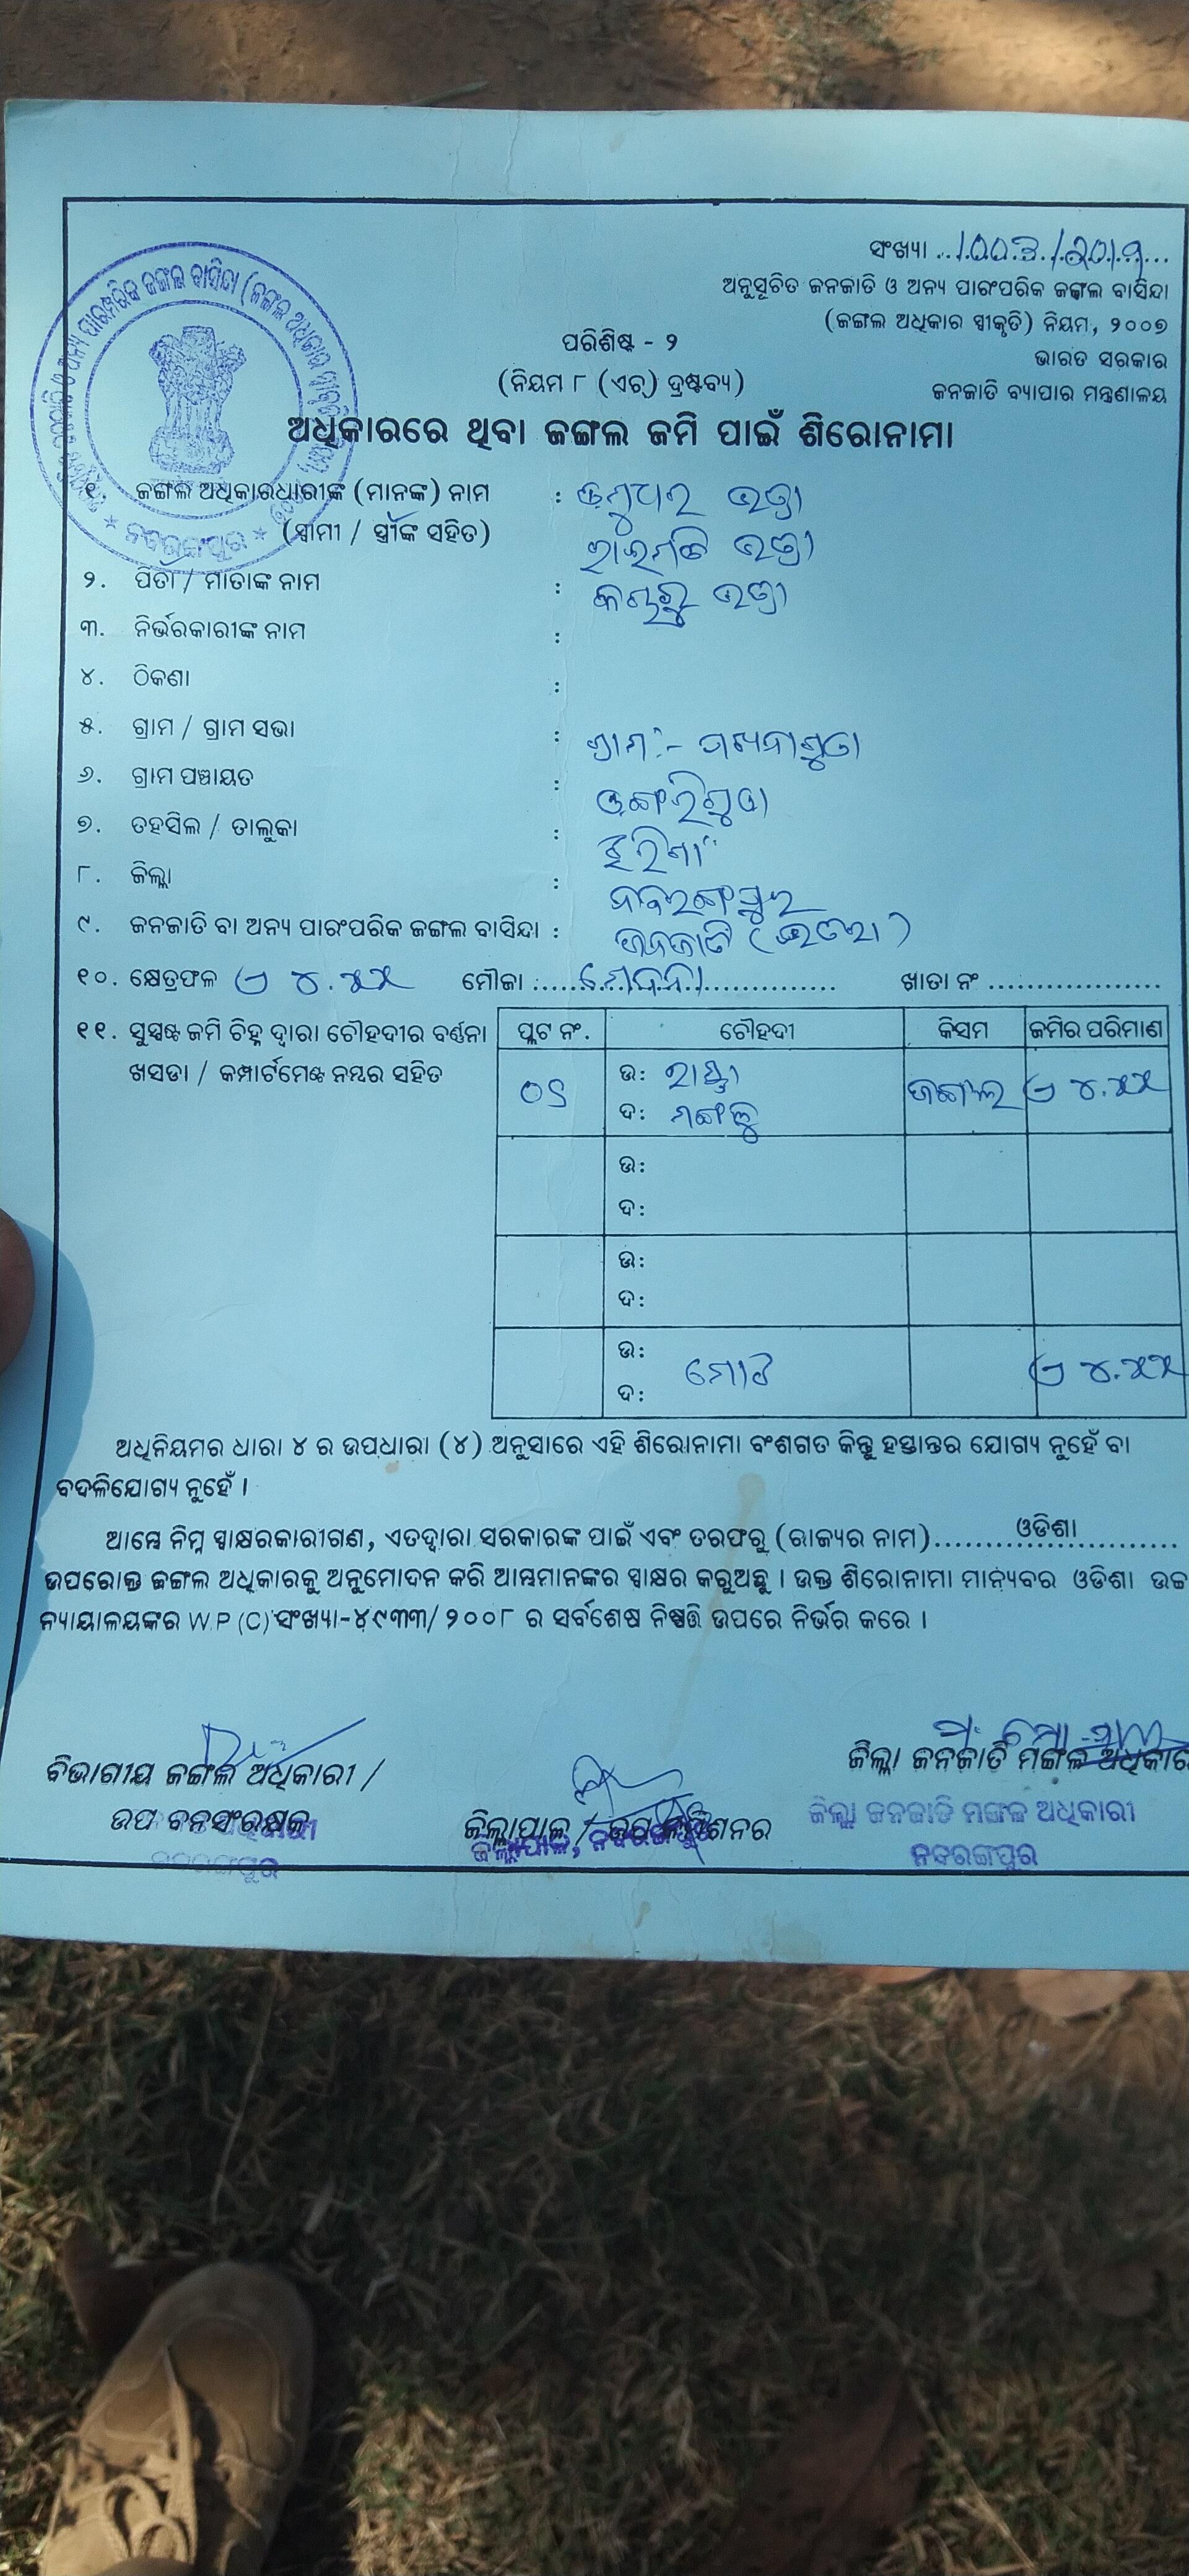 ସଂଖ୍ୟା
ଅନୁସୂଚିତ ଜନଜାତି ଓ ଅନ୍ୟ ପାରଂପରିକ ଜଙ୍ଗଲ ବାସିନ୍ଦା
(ଜଙ୍ଗଲ ଅଧିକାର ସ୍ୱୀକୃତି) ନିୟମ, ୨୦୦୭
ପରିଶିଷ୍ଟ - ୨
ଭାରତ ସରକାର
(ନିୟମ ୮ (ଏଚ୍) ଦ୍ରଷ୍ଟବ୍ୟ)
ଜନଜାତି ବ୍ୟାପାର ମନ୍ତ୍ରଣାଳୟ
ଅଧିକାରରେ ଥିବା ଜଙ୍ଗଲ ଜମି ପାଇଁ ଶିରୋନାମା
୧. ଜଙ୍ଗଲ ଅଧିକାରଧାରୀଙ୍କ (ମାନଙ୍କ) ନାମ :
(ସ୍ୱାମୀ / ସ୍ତ୍ରୀଙ୍କ ସହିତ)
୨. ପିତା / ମାତାଙ୍କ ନାମ :
୩. ନିର୍ଭରକାରୀଙ୍କ ନାମ :
୪. ଠିକଣା :
୫. ଗ୍ରାମ / ଗ୍ରାମ ସଭା : ଗ୍ରାମ:-
୬. ଗ୍ରାମ ପଞ୍ଚାୟତ :
୭. ତହସିଲ / ତାଲୁକା :
୮. ଜିଲ୍ଲା : ନବରଙ୍ଗପୁର
୯. ଜନଜାତି ବା ଅନ୍ୟ ପାରଂପରିକ ଜଙ୍ଗଲ ବାସିନ୍ଦା : ଜନଜାତି
୧୦. କ୍ଷେତ୍ରଫଳ ମୌଜା : ଖାତା ନଂ
୧୧. ସୁସ୍ପଷ୍ଟ ଜମି ଚିହ୍ନ ଦ୍ୱାରା ଚୌହଦୀର ବର୍ଣ୍ଣନା
ଖସଡା / କମ୍ପାର୍ଟମେଣ୍ଟ ନମ୍ବର ସହିତ
ପ୍ଲଟ ନଂ. ଚୌହଦୀ କିସମ ଜମିର ପରିମାଣ
ଉ: ରାସ୍ତା
ଜଙ୍ଗଲ
ଦ:
ଉ:
ଦ:
ଉ:
ଦ:
ଉ:
ମୋଟ
ଦ:
ଅଧିନିୟମର ଧାରା ୪ ର ଉପଧାରା (୪) ଅନୁସାରେ ଏହି ଶିରୋନାମା ବଂଶଗତ କିନ୍ତୁ ହସ୍ତାନ୍ତର ଯୋଗ୍ୟ ନୁହେଁ ବା
ବଦଳିଯୋଗ୍ୟ ନୁହେଁ ।
ଆମ୍ଭେ ନିମ୍ନ ସ୍ୱାକ୍ଷରକାରୀଗଣ, ଏତଦ୍ୱାରା ସରକାରଙ୍କ ପାଇଁ ଏବଂ ତରଫରୁ (ରାଜ୍ୟର ନାମ) ଓଡିଶା
ଉପରୋକ୍ତ ଜଙ୍ଗଲ ଅଧିକାରକୁ ଅନୁମୋଦନ କରି ଆମ୍ଭମାନଙ୍କର ସ୍ୱାକ୍ଷର କରୁଅଛୁ । ଉକ୍ତ ଶିରୋନାମା ମାନ୍ୟବର ଓଡିଶା ଉଚ୍ଚ
ନ୍ୟାୟାଳୟଙ୍କର W.P (C) ସଂଖ୍ୟା-୪୯୩୩/୨୦୦୮ ର ସର୍ବଶେଷ ନିଷ୍ପତ୍ତି ଉପରେ ନିର୍ଭର କରେ ।
ଜିଲ୍ଲା ଜନଜାତି ମଙ୍ଗଳ
ବିଭାଗୀୟ ଜଙ୍ଗଲ ଅଧିକାରୀ /
ଉପ ବନସଂରକ୍ଷକ
ଜିଲ୍ଲାପାଳ / ଉପ କମିଶନର
ଜିଲ୍ଲା ଜନଜାତି ମଙ୍ଗଳ ଅଧିକାରୀ
ନବରଙ୍ଗପୁର
ଜିଲ୍ଲାପାଳ, ନବରଙ୍ଗପୁର